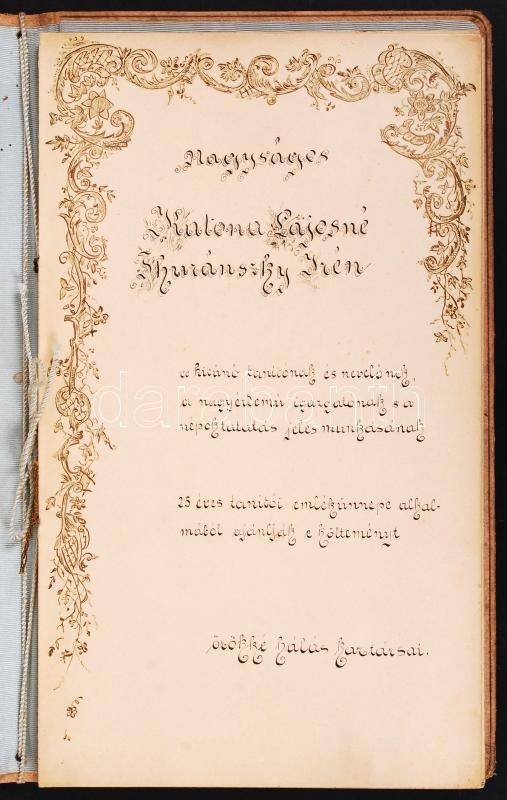 Nagyságos
Katona Lajosné
Thuránszky Irén
a kiváló tanítónak és nevelőnek,
a nagyérdemű igazgatónak s a
népoktatás jeles munkásának
25 éves tanítói emlékünnepe alkal-
mából ajánlják e költeményt
örökké hálás kartársai.
darabanth